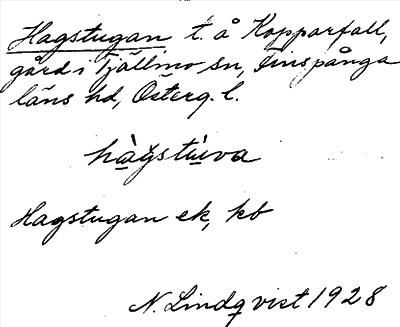 Hagstugan t. å Kopparfall,
gård i Tjällmo sn, Finspånga
läns hd, Österg. l.
hàgstùva
Hagstugan ek, kb
N. Lindqvist 1928